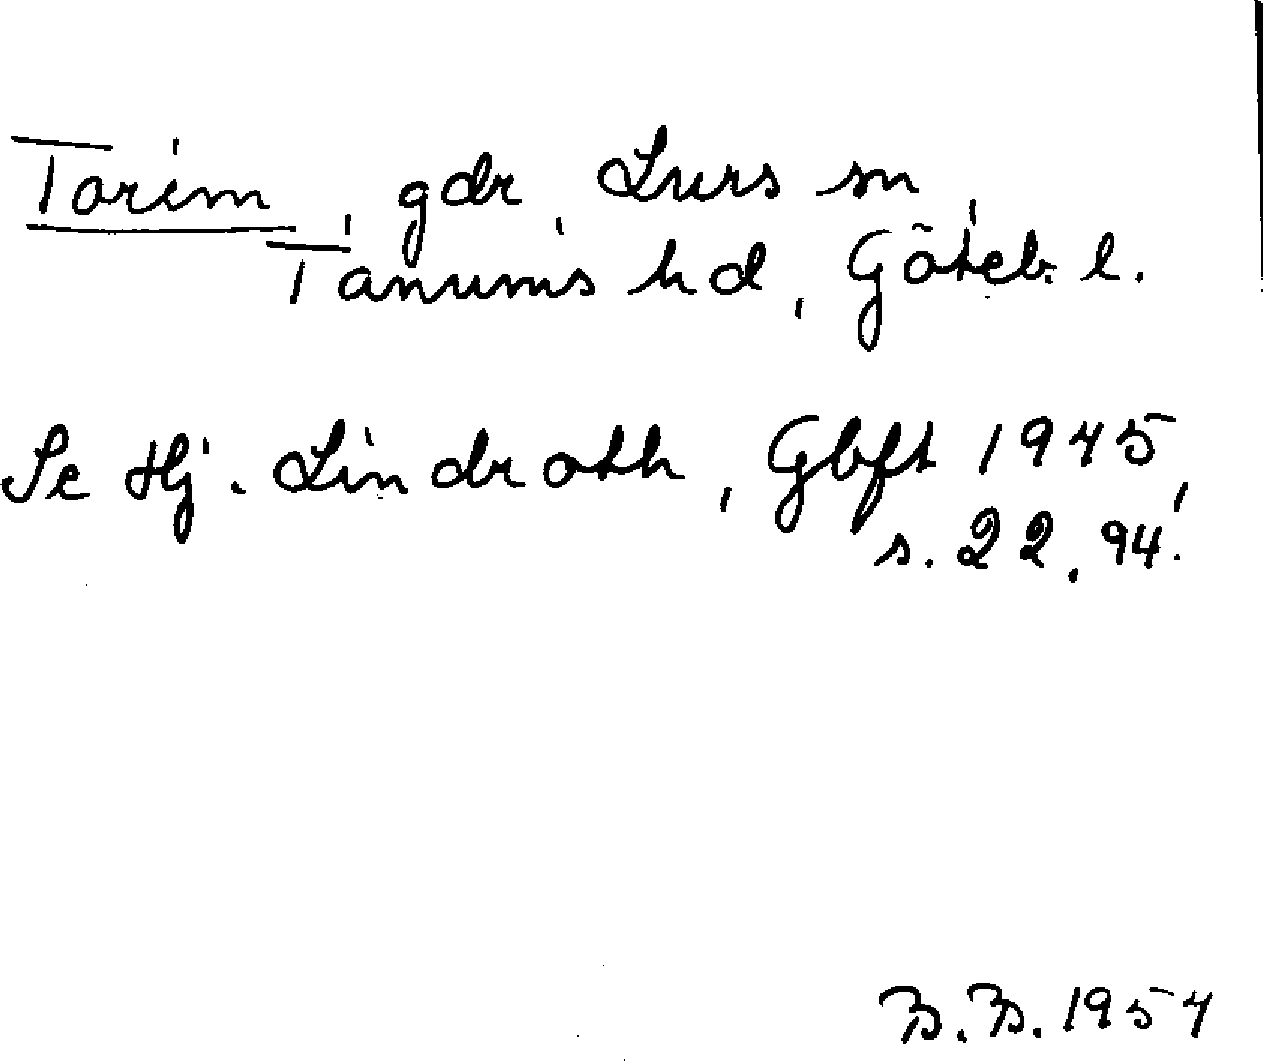 Torim, gdr, Lurs sn,
Tanums hd, Göteb. l.
Se Hj. Lindroth, Gbft 1945,
s. 22, 94!
B.B. 1954